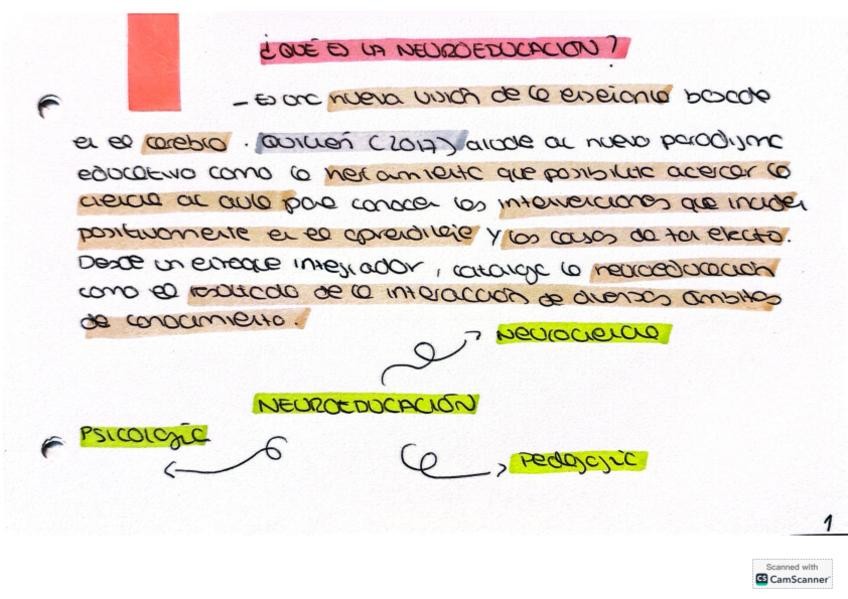 ¿QUÉ ES LA NEUROEDUCACIÓN?
- Es una nueva visión de la enseñanza basada
en el cerebro. Guillén (2017) alude al nuevo paradigma
educativo como la herramienta que posibilita acercar la
ciencia al aula para conocer las intervenciones que inciden
positivamente en el aprendizaje y las causas de tal efecto.
Desde un enfoque integrador, cataloga la neuroeducación
como el resultado de la interacción de diversos ámbitos
de conocimiento.
Neurociencia
NEUROEDUCACIÓN
PSICOLOgía
Pedagogía
1
Scanned with
CS CamScanner